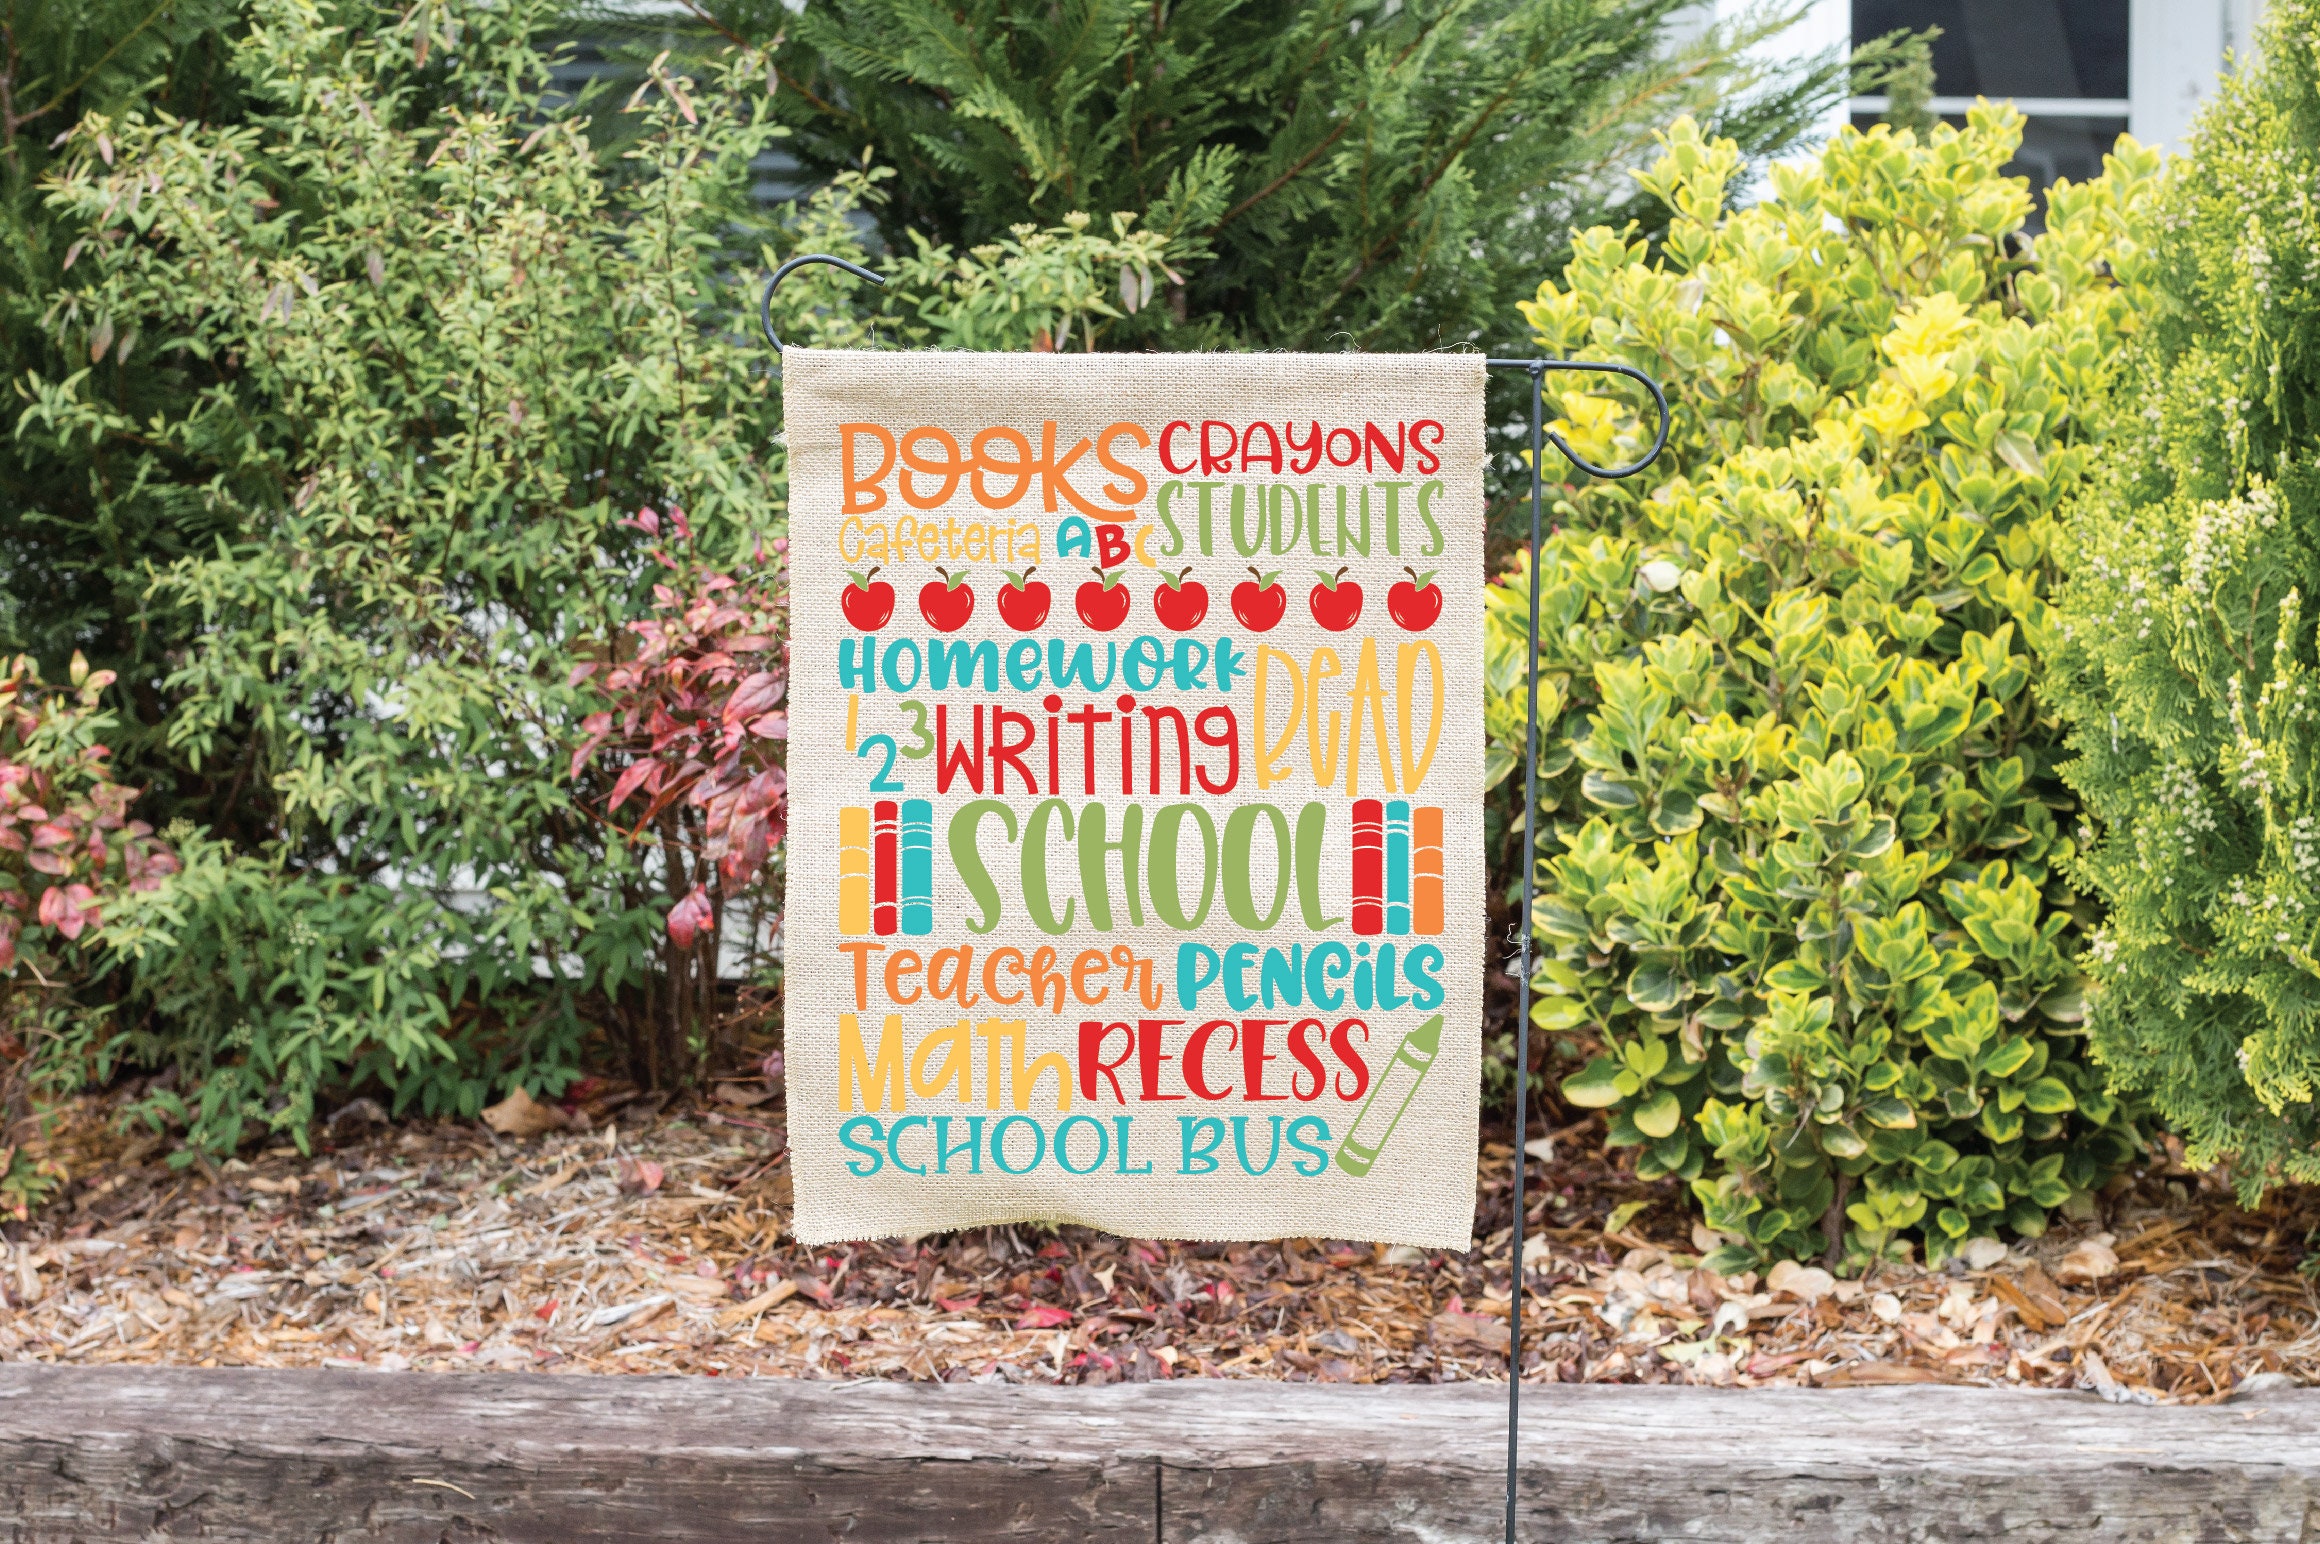 BOOKS CRAYONS
Cafeteria ABC STUDENTS
HOMEWORK READ
123 WRiTing
SCHOOL
Teacher PENCiLS
Math RECESS
SCHOOL BUS